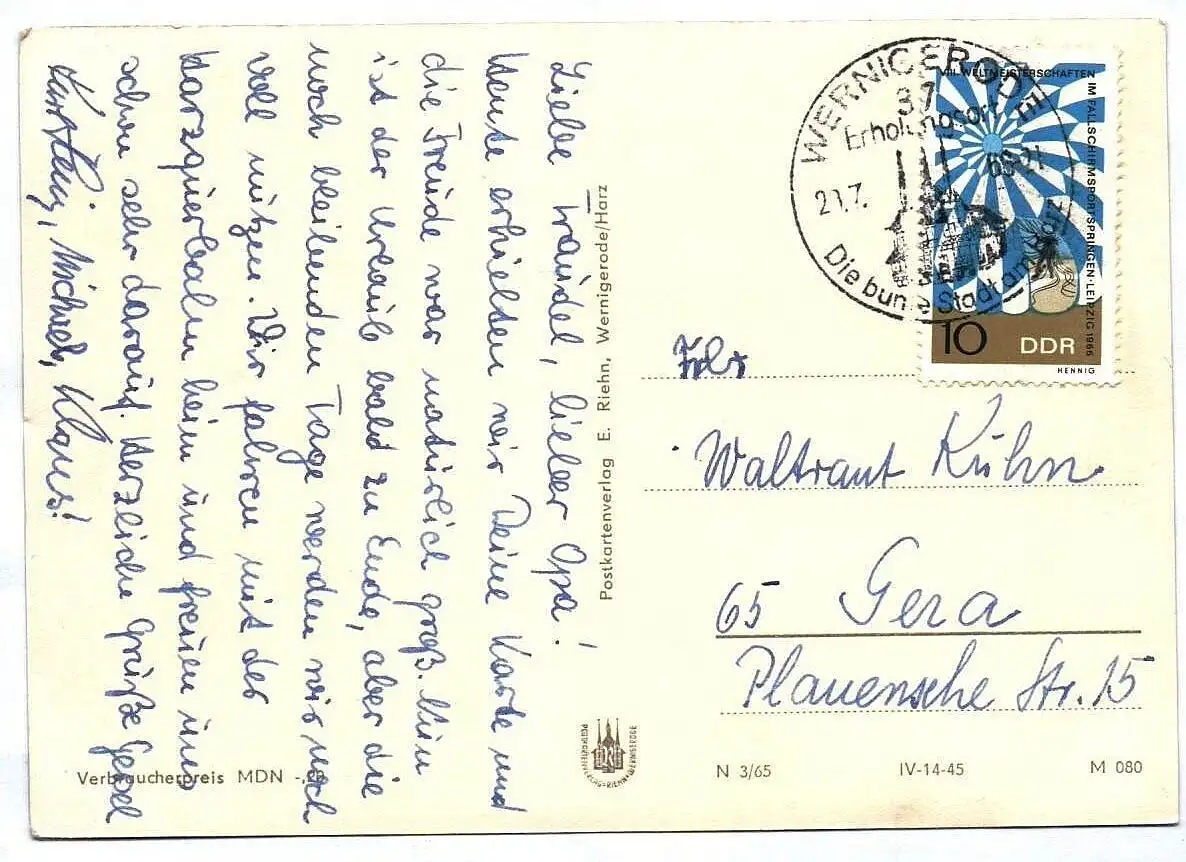 Liebe Traudel, lieber Opa!
Heute erhielten wir Deine Karte und
die Freude war natürlich groß. Nun
ist der Urlaub bald zu Ende, aber die
noch bleibenden Tage werden wir noch
voll nützen. Wir fahren mit der
Harzquerbahn heim und freuen uns
schon sehr darauf. Herzliche Grüße Gesel
Karstein, Michael, Klaus!
Verbraucherpreis MDN -,20
Postkartenverlag E. Riehn, Wernigerode/Harz
POSTKARTENVERLAG RIEHN WERNIGERODE
WERNIGERODE
37
Erholungsort
20.7. 66-21
Die bunte Stadt am Harz
VIII. WELTMEISTERSCHAFTEN
IM FALLSCHIRMSPORTSPRINGEN · LEIPZIG 1966
10 DDR
HENNIG
Frl.
Waltraut Kühn
65 Gera
Plauensche Str. 15
N 3/65 IV-14-45 M 080